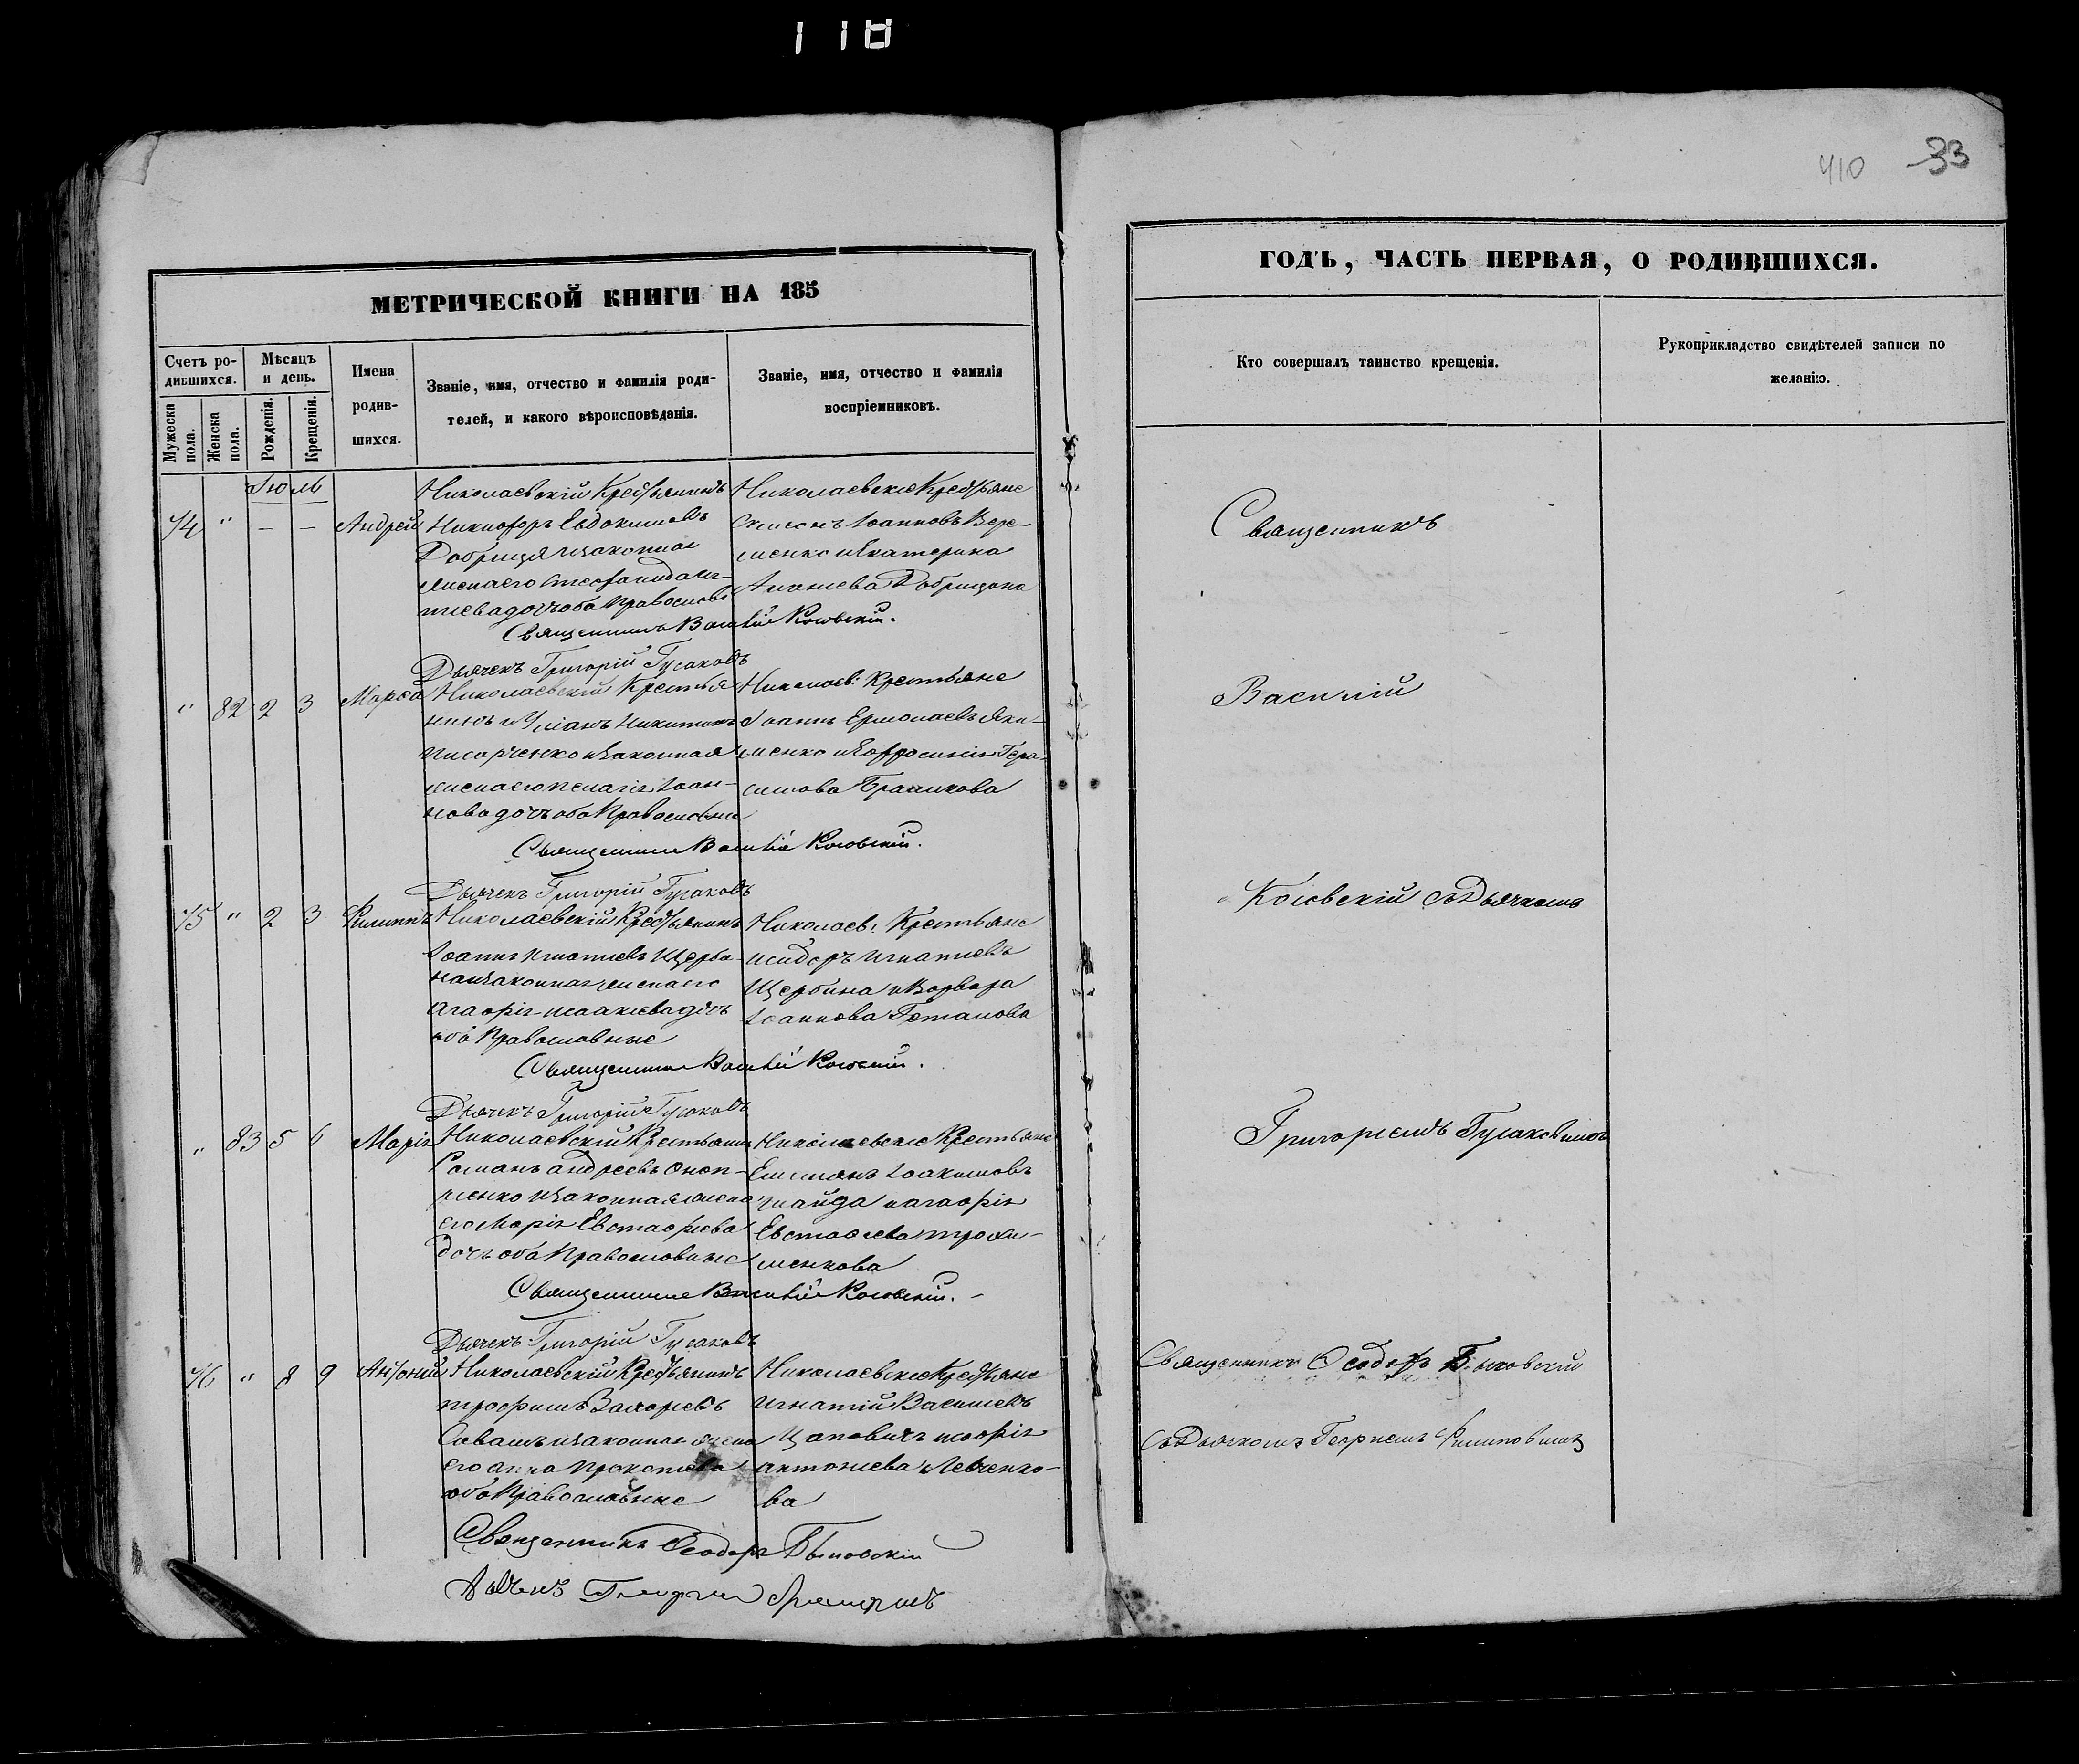 118
410 33
МЕТРИЧЕСКОЙ КНИГИ НА 185
Счетъ ро-
дившихся.
Мѣсяцъ
и день.
Мужеска
пола.
Женска
пола.
Рожденія.
Крещенія.
Имена
родив-
шихся.
Званіе, имя, отчество и фамилія роди-
телей, и какого вѣроисповѣданія.
Званіе, имя, отчество и фамилія
воспріемниковъ.
Іюль
74 " — — Андрей
Николаевскій Крестьянинъ
Никифоръ Евдокимовъ
Добрица и законная
жена его Стефанида
дочь оба Православ
Николаевскіе Крестьяне
Симонъ Іоанновъ Вере-
менко и Екатерина
Ананіева Добрицына
Священникъ Василій Косовскій.
Дьячекъ Григорій Гусаковъ
" 82 2 3 Марѳа
Николаевскій Крестья-
нинъ Никитинъ
и законная
жена его Пелагія Іоан-
нова дочь оба Православные
Николаев: Крестьяне
Іоаннъ Ермолаевъ Яки-
менко и Евфросинія Гера-
симова
Священникъ Василій Косовскій.
Дьячекъ Григорій Гусаковъ
75 " 2 3 Филиппъ
Николаевскій Крестьянинъ
Іоаннъ Игнатіевъ Щерби-
на и законная жена его
Агафія Исаакіева дочь
оба Православные
Николаев: Крестьяне
Исидоръ Игнатіевъ
Щербина и Варвара
Іоаннова
Священникъ Василій Косовскій.
Дьячекъ Григорій Гусаковъ
" 83 5 6 Марія
Николаевскій Крестьянинъ
Романъ Андреевъ Оноп-
ріенко и законная жена
его Марія Евстафіева
дочь оба Православные
Николаевскіе Крестьяне
Емиліянъ Іоакимовъ
и Агафія
Евстафіева Трохи-
менкова
Священникъ Василій Косовскій.
Дьячекъ Григорій Гусаковъ
76 " 8 9 Антоній
Николаевскій Крестьянинъ
Трофимъ Захаріевъ
и законная жена
его Анна Прокопіева
оба Православные
Николаевскіе Крестьяне
Игнатій Василіевъ
Цаповичъ
Антоніева Левченко-
ва
Священникъ Ѳеодоръ Быковскій
ГОДЪ, ЧАСТЬ ПЕРВАЯ, О РОДИВШИХСЯ.
Кто совершалъ таинство крещенія.
Рукоприкладство свидѣтелей записи по
желанію.
Священникъ
Василій
Косовскій съ Дьячкомъ
Григоріемъ Гусаковымъ
Священникъ Ѳеодоръ Быковскій
съ Дьячкомъ Георгіемъ Филиповимъ